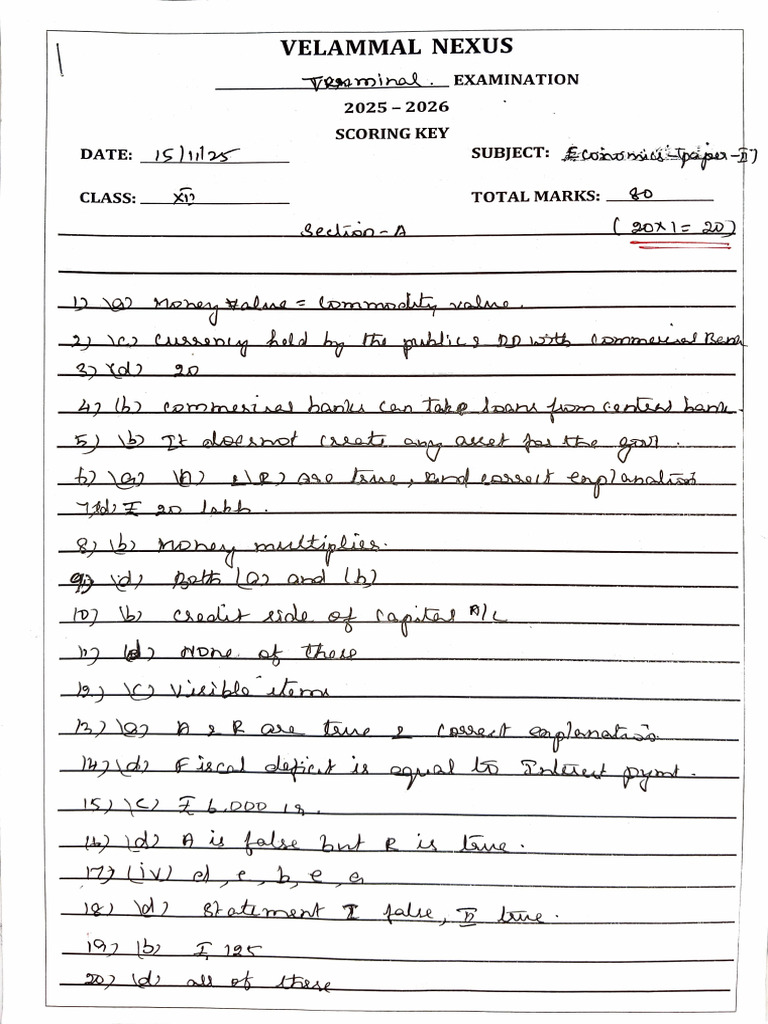 VELAMMAL NEXUS
Terminal. EXAMINATION
2025 – 2026
SCORING KEY
DATE: 15/11/25 SUBJECT: Economics-Paper-II)
CLASS: XII TOTAL MARKS: 80
Section-A (20x1=20)
1) (a) Money value = commodity value.
2) (c) currency held by the public & DD with commercial Bank
3) (d) 20
4) (b) commerical banks can take loans from central bank.
5) (b) It doesnot create any asset for the govt.
6) (a) (A) & (R) are true, and correct explanation
7) (d) ₹ 20 lakh.
8) (b) Money multiplies.
9) (d) Both (a) and (b)
10) (b) credit side of capital A/C
11) (d) None of these
12) (c) visible items
13) (a) A & R are true & correct explanation
14) (d) Fiscal deficit is equal to Interest pymt.
15) (c) ₹ 6,000 cr.
16) (d) A is false but R is true.
17) (iv) d, c, b, e, a
18) (d) Statement I false, II true.
19) (b) ₹ 125
20) (d) all of these